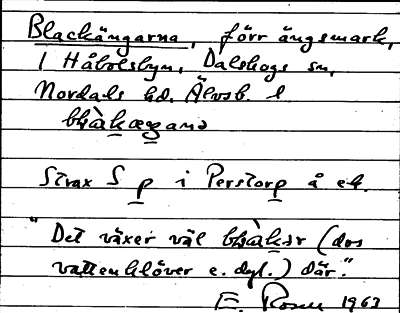 Blackängarna, förr ängsmark,
1 Håbolsbyn, Dalskogs sn,
Nordals hd. Älvsb. l
blàkæŋana
Strax S p i Perstorp å ek.
"Det växer väl blàkər (dvs
vattenklöver e. dyl.) där."
E. Rosen 1963